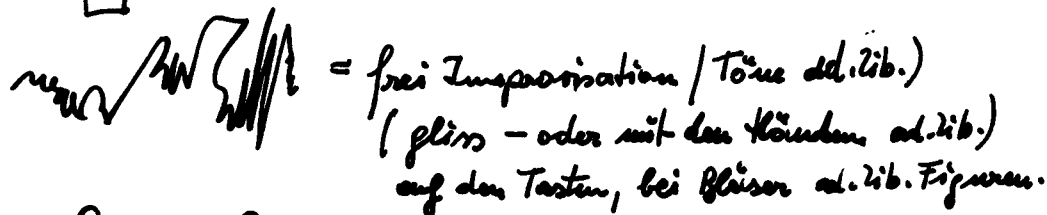 = frei Improvisation / Töne ad.lib.)
( gliss – oder mit den Händen ad.lib.)
auf den Tasten, bei Bläser ad.lib. Figuren.